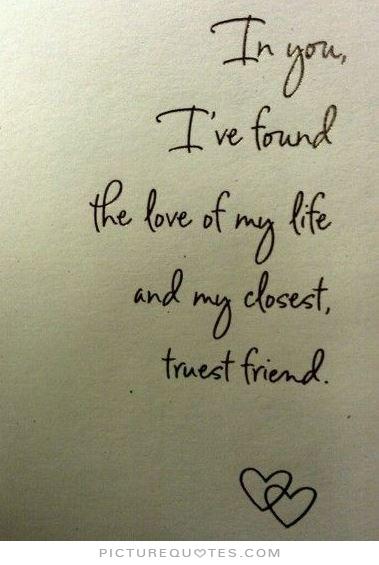 In you,
I've found
the love of my life
and my closest,
truest friend.
PICTUREQUOTES.COM